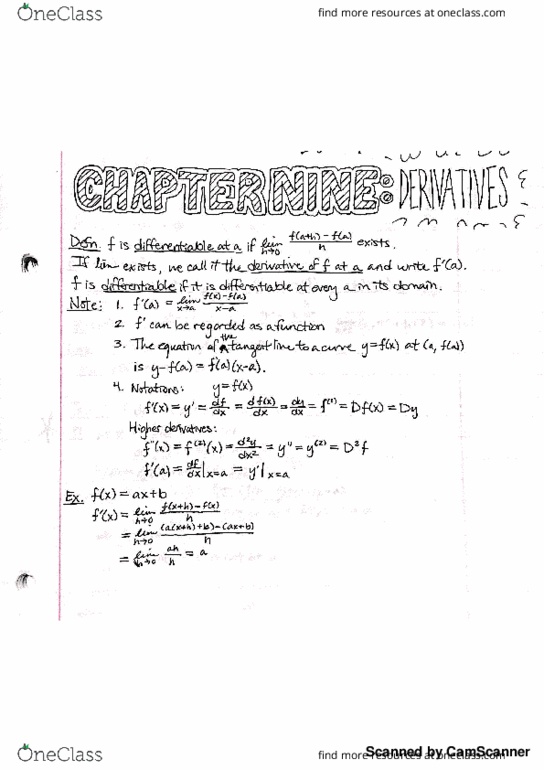 OneClass
find more resources at oneclass.com
CHAPTER NINE: DERIVATIVES
Defn. f is differentiable at a if lim h→0 f(a+h) - f(a) / h exists.
If lim exists, we call it the derivative of f at a and write f'(a).
f is differentiable if it is differentiable at every a in its domain.
Note: 1. f'(a) = lim x→a f(x)-f(a) / x-a
2. f' can be regarded as a function
3. The equation of the tangent line to a curve y=f(x) at (a, f(a))
is y-f(a) = f'(a)(x-a).
4. Notations: y=f(x)
f'(x) = y' = df/dx = d f(x)/dx = dy/dx = f⁽¹⁾ = Df(x) = Dy
Higher derivatives:
f"(x) = f⁽²⁾(x) = d²y/dx² = y" = y⁽²⁾ = D²f
f'(a) = df/dx |x=a = y'|x=a
Ex. f(x) = ax+b
f'(x) = lim h→0 f(x+h) - f(x) / h
= lim h→0 (a(x+h)+b) - (ax+b) / h
= lim h→0 ah/h = a
OneClass
find more resources at oneclass.com
Scanned by CamScanner